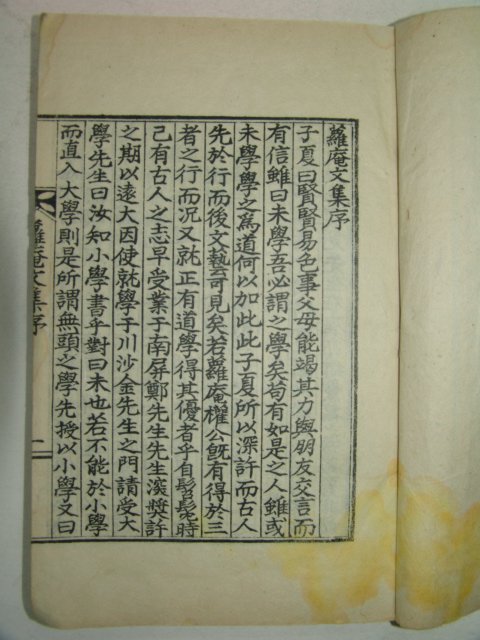 蘿庵文集序
子夏曰賢賢易色事父母能竭其力與朋友交言而
有信雖曰未學吾必謂之學矣苟有如是之人雖或
未學學之爲道何以加此此子夏所以深許而古人
先於行而後文藝可見矣若蘿庵權公旣有得於三
者之行而况又就正有道學得其優者乎自髫髮時
已有古人之志早受業于南屏鄭先生先生深奬許
之期以遠大因使就學于川沙金先生之門請受大
學先生曰汝知小學書乎對曰未也若不能於小學
而直入大學則是所謂無頭之學先授以小學又曰
蘿庵文集序